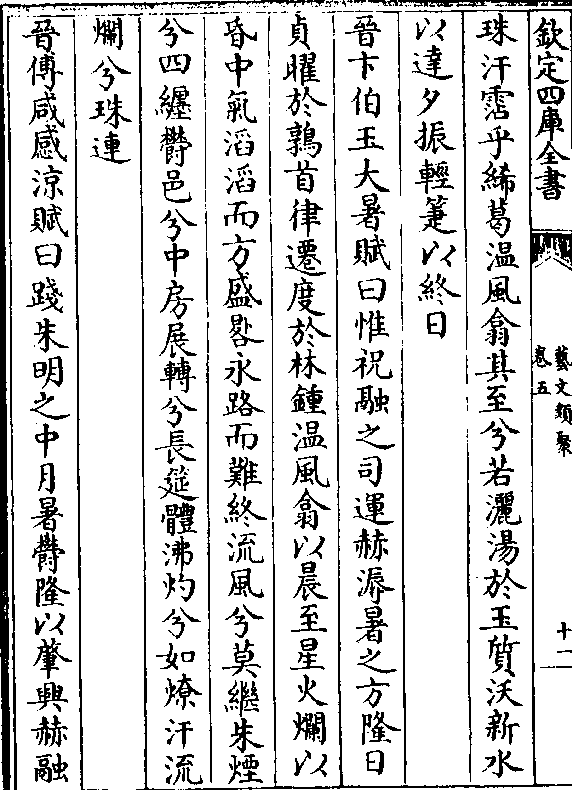 欽定四庫全書
藝文類聚
卷五
十一
珠汗霑乎絺葛温風翕其至兮若灑湯於玉質沃新水
以達夕振輕箑以終日
晉卞伯玉大暑賦曰惟祝融之司運赫溽暑之方隆日
貞曜於鶉首律遷度於林鍾温風翕以晨至星火爛以
昏中氣滔滔而方盛晷永路而難終流風兮莫繼朱煙
兮四纏欝邑兮中房展轉兮長筵體沸灼兮如燎汗流
爛兮珠連
晉傅咸感涼賦曰踐朱明之中月暑欝隆以肇興赫融